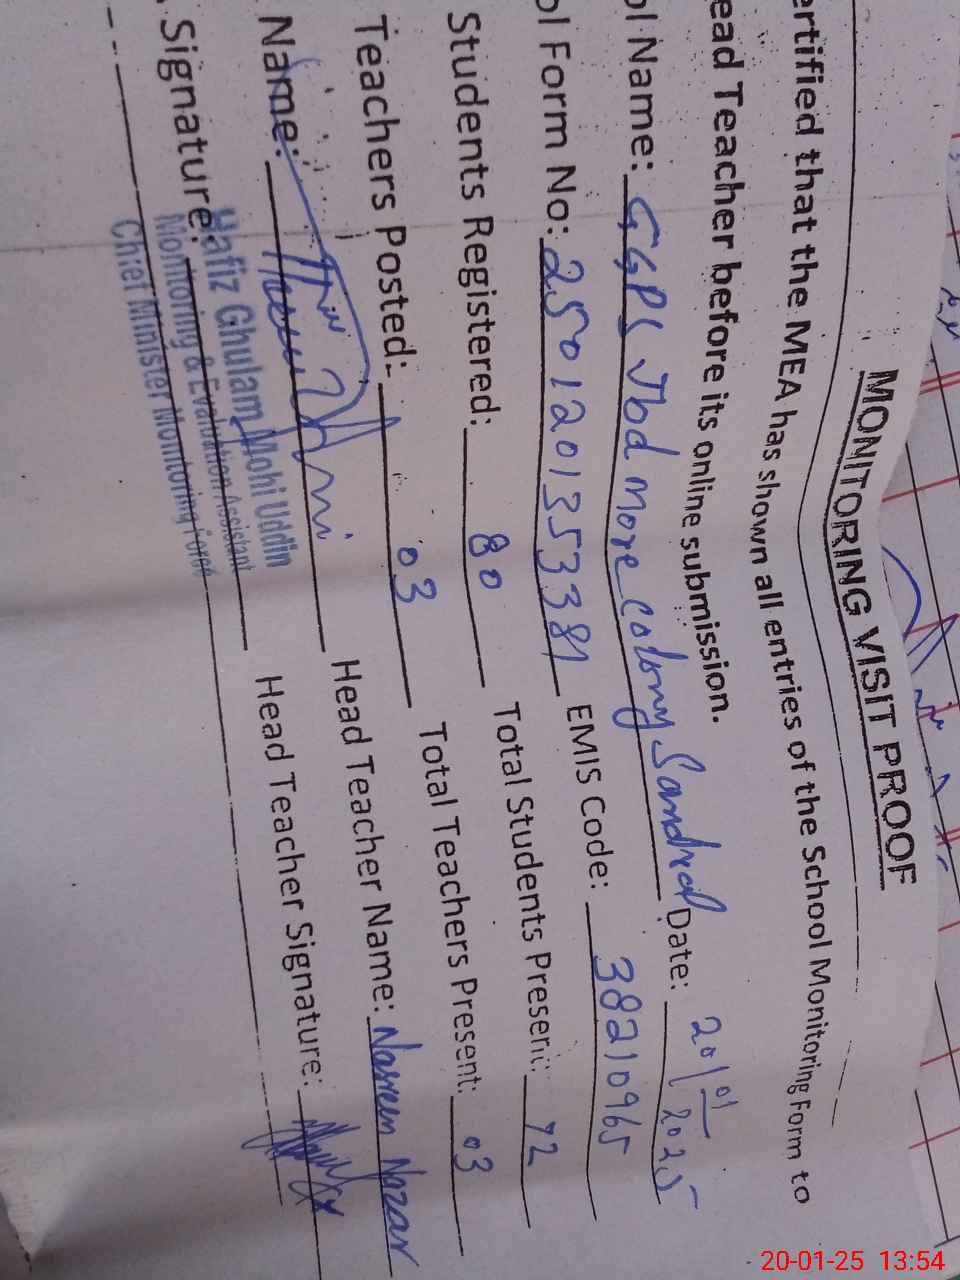 MONITORING VISIT PROOF
ertified that the MEA has shown all entries of the School Monitoring Form to
ead Teacher before its online submission.
ol Name: GGPS Jbd more Colony Sandral Date: 20/01/2025
ol Form No: 250120135338 EMIS Code: 38210965
Students Registered: 80 Total Students Present: 72
Teachers Posted: 03 Total Teachers Present: 03
Name: Head Teacher Name: Nasreen Nazar
Signature: Head Teacher Signature:
Hafiz Ghulam Mohi Uddin
Monitoring & Evaluation Assistant
Chief Minister Monitoring Force
20-01-25 13:54